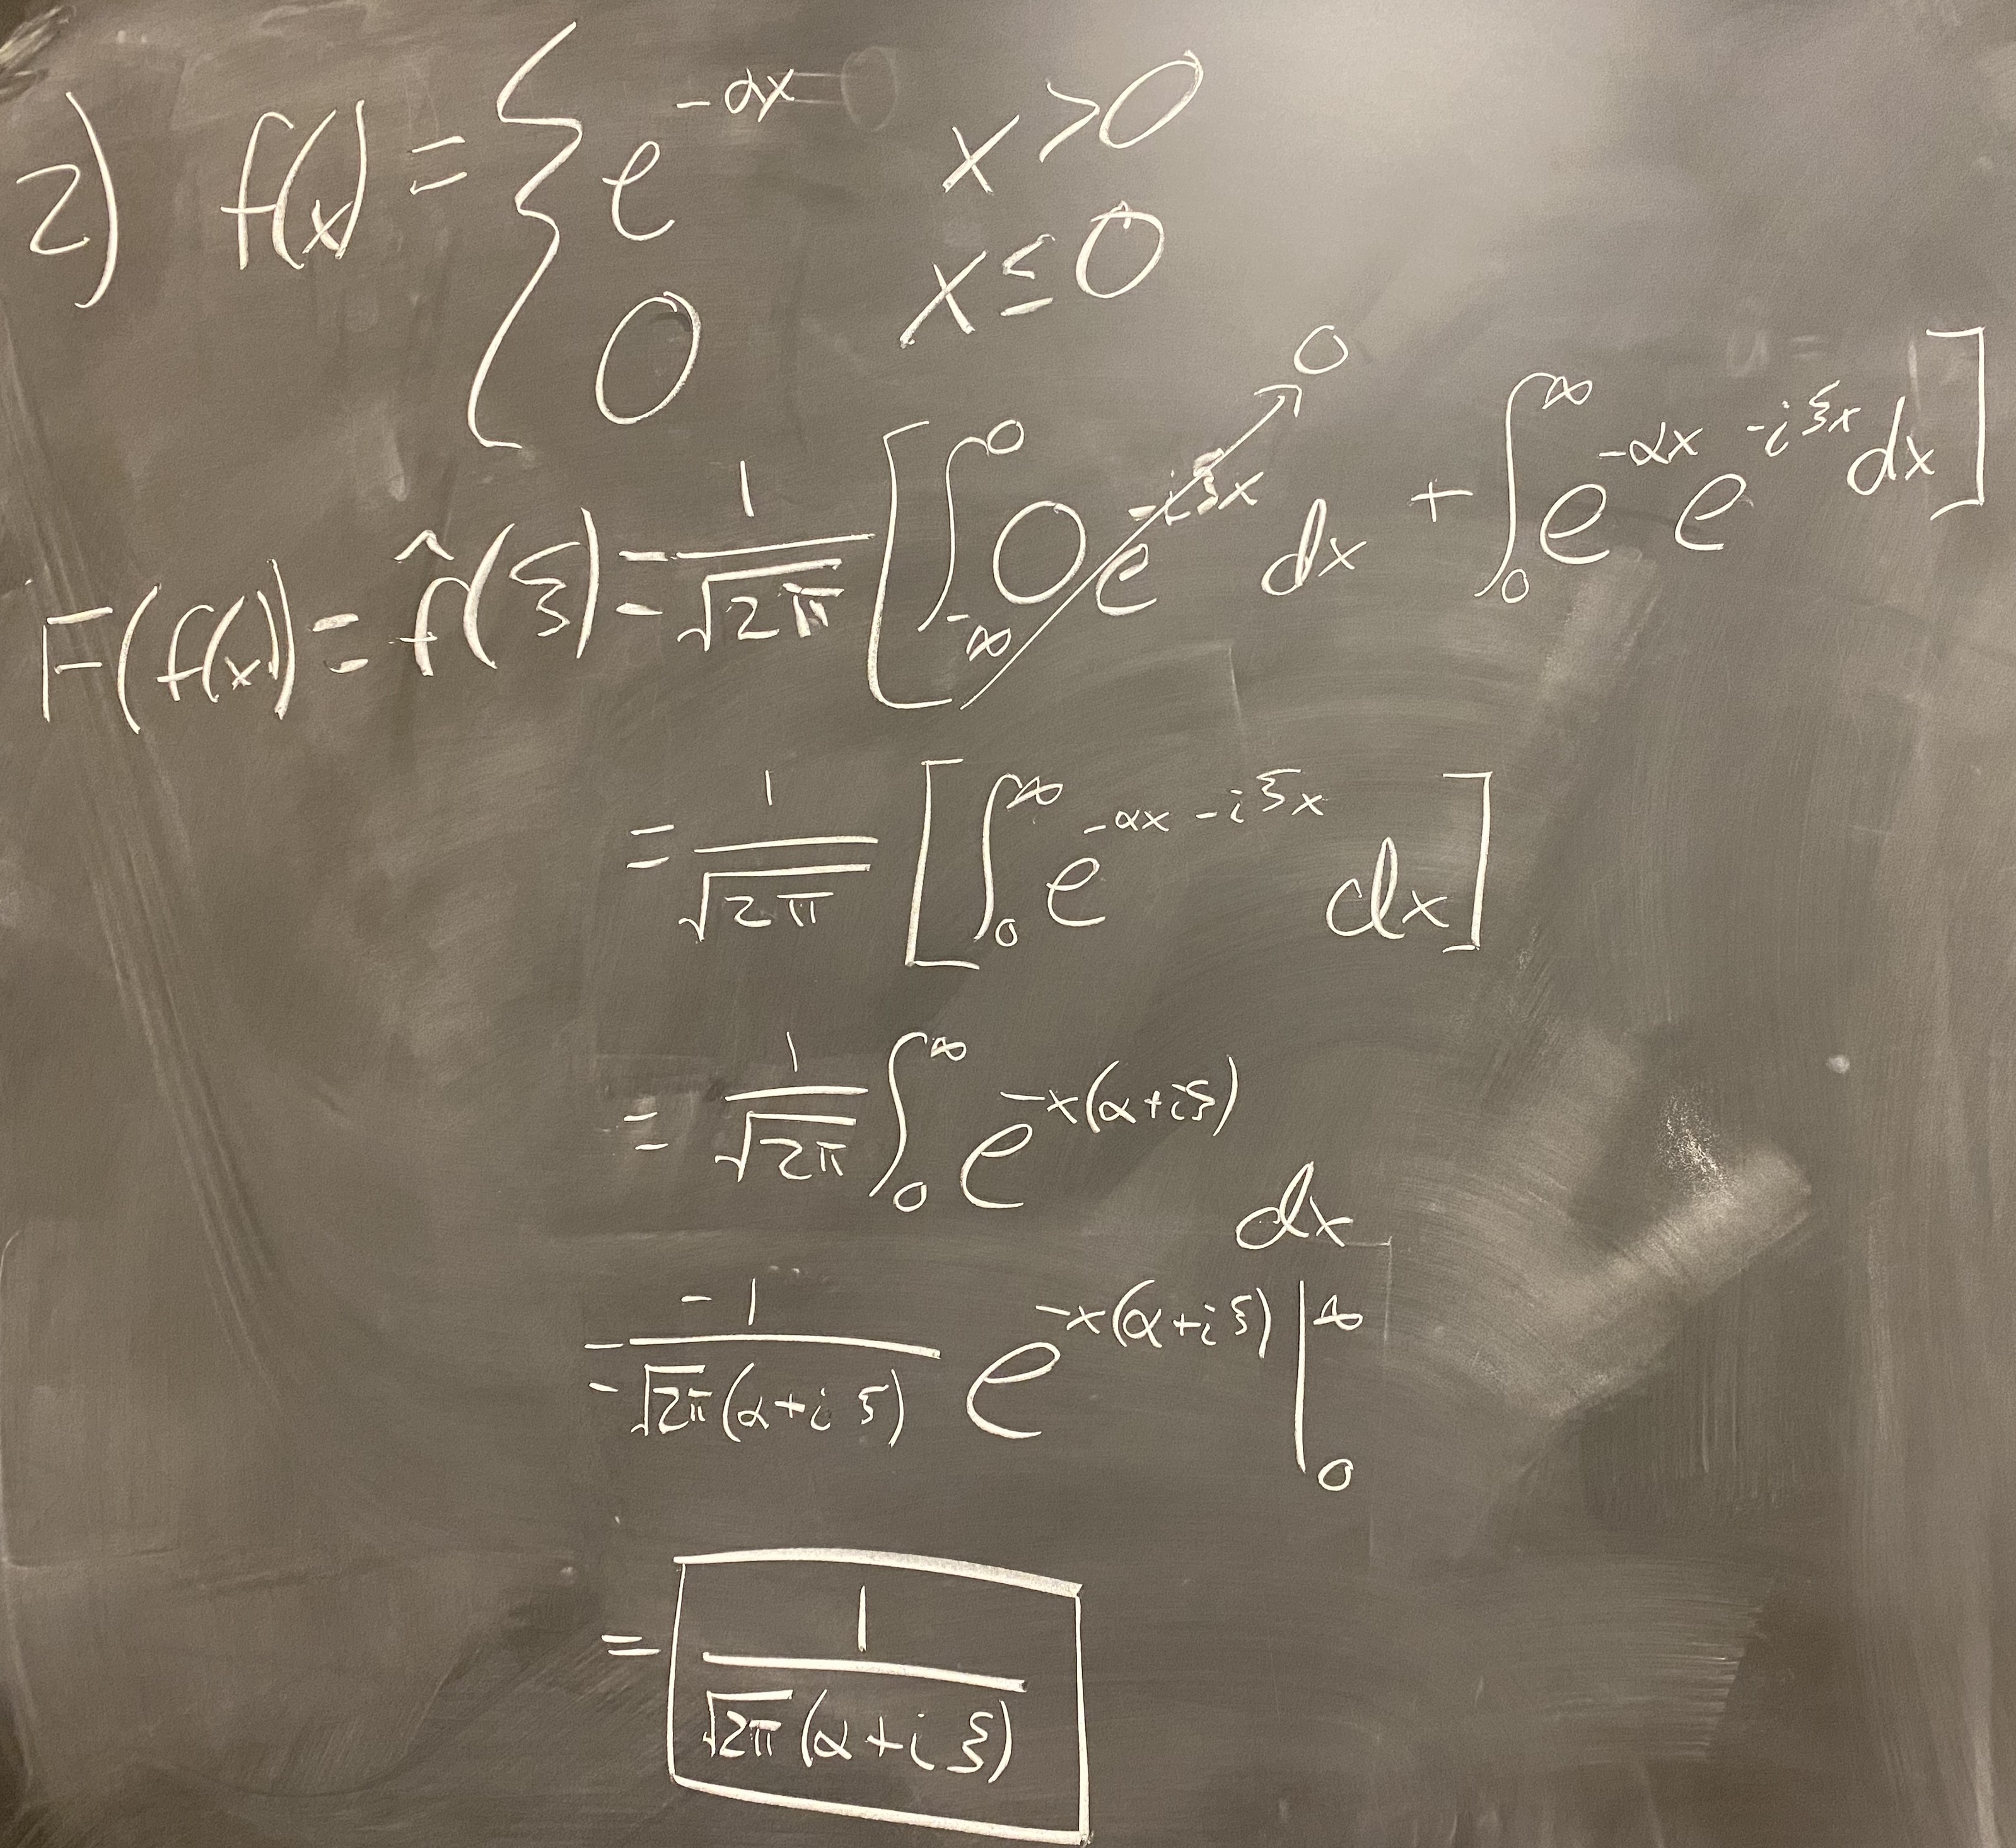 2) f(x) = { e^{-αx} x > 0
0 x ≤ 0
F(f(x)) = f̂(ξ) = 1/√2π [ ∫_{-∞}^{0} 0 e^{-iξx} dx → 0 + ∫_0^∞ e^{-αx} e^{-iξx} dx ]
= 1/√2π [ ∫_0^∞ e^{-αx - iξx} dx ]
= 1/√2π ∫_0^∞ e^{-x(α+iξ)} dx
= -1/√2π(α+iξ) e^{-x(α+iξ)} |_0^∞
= 1/√2π(α+iξ)